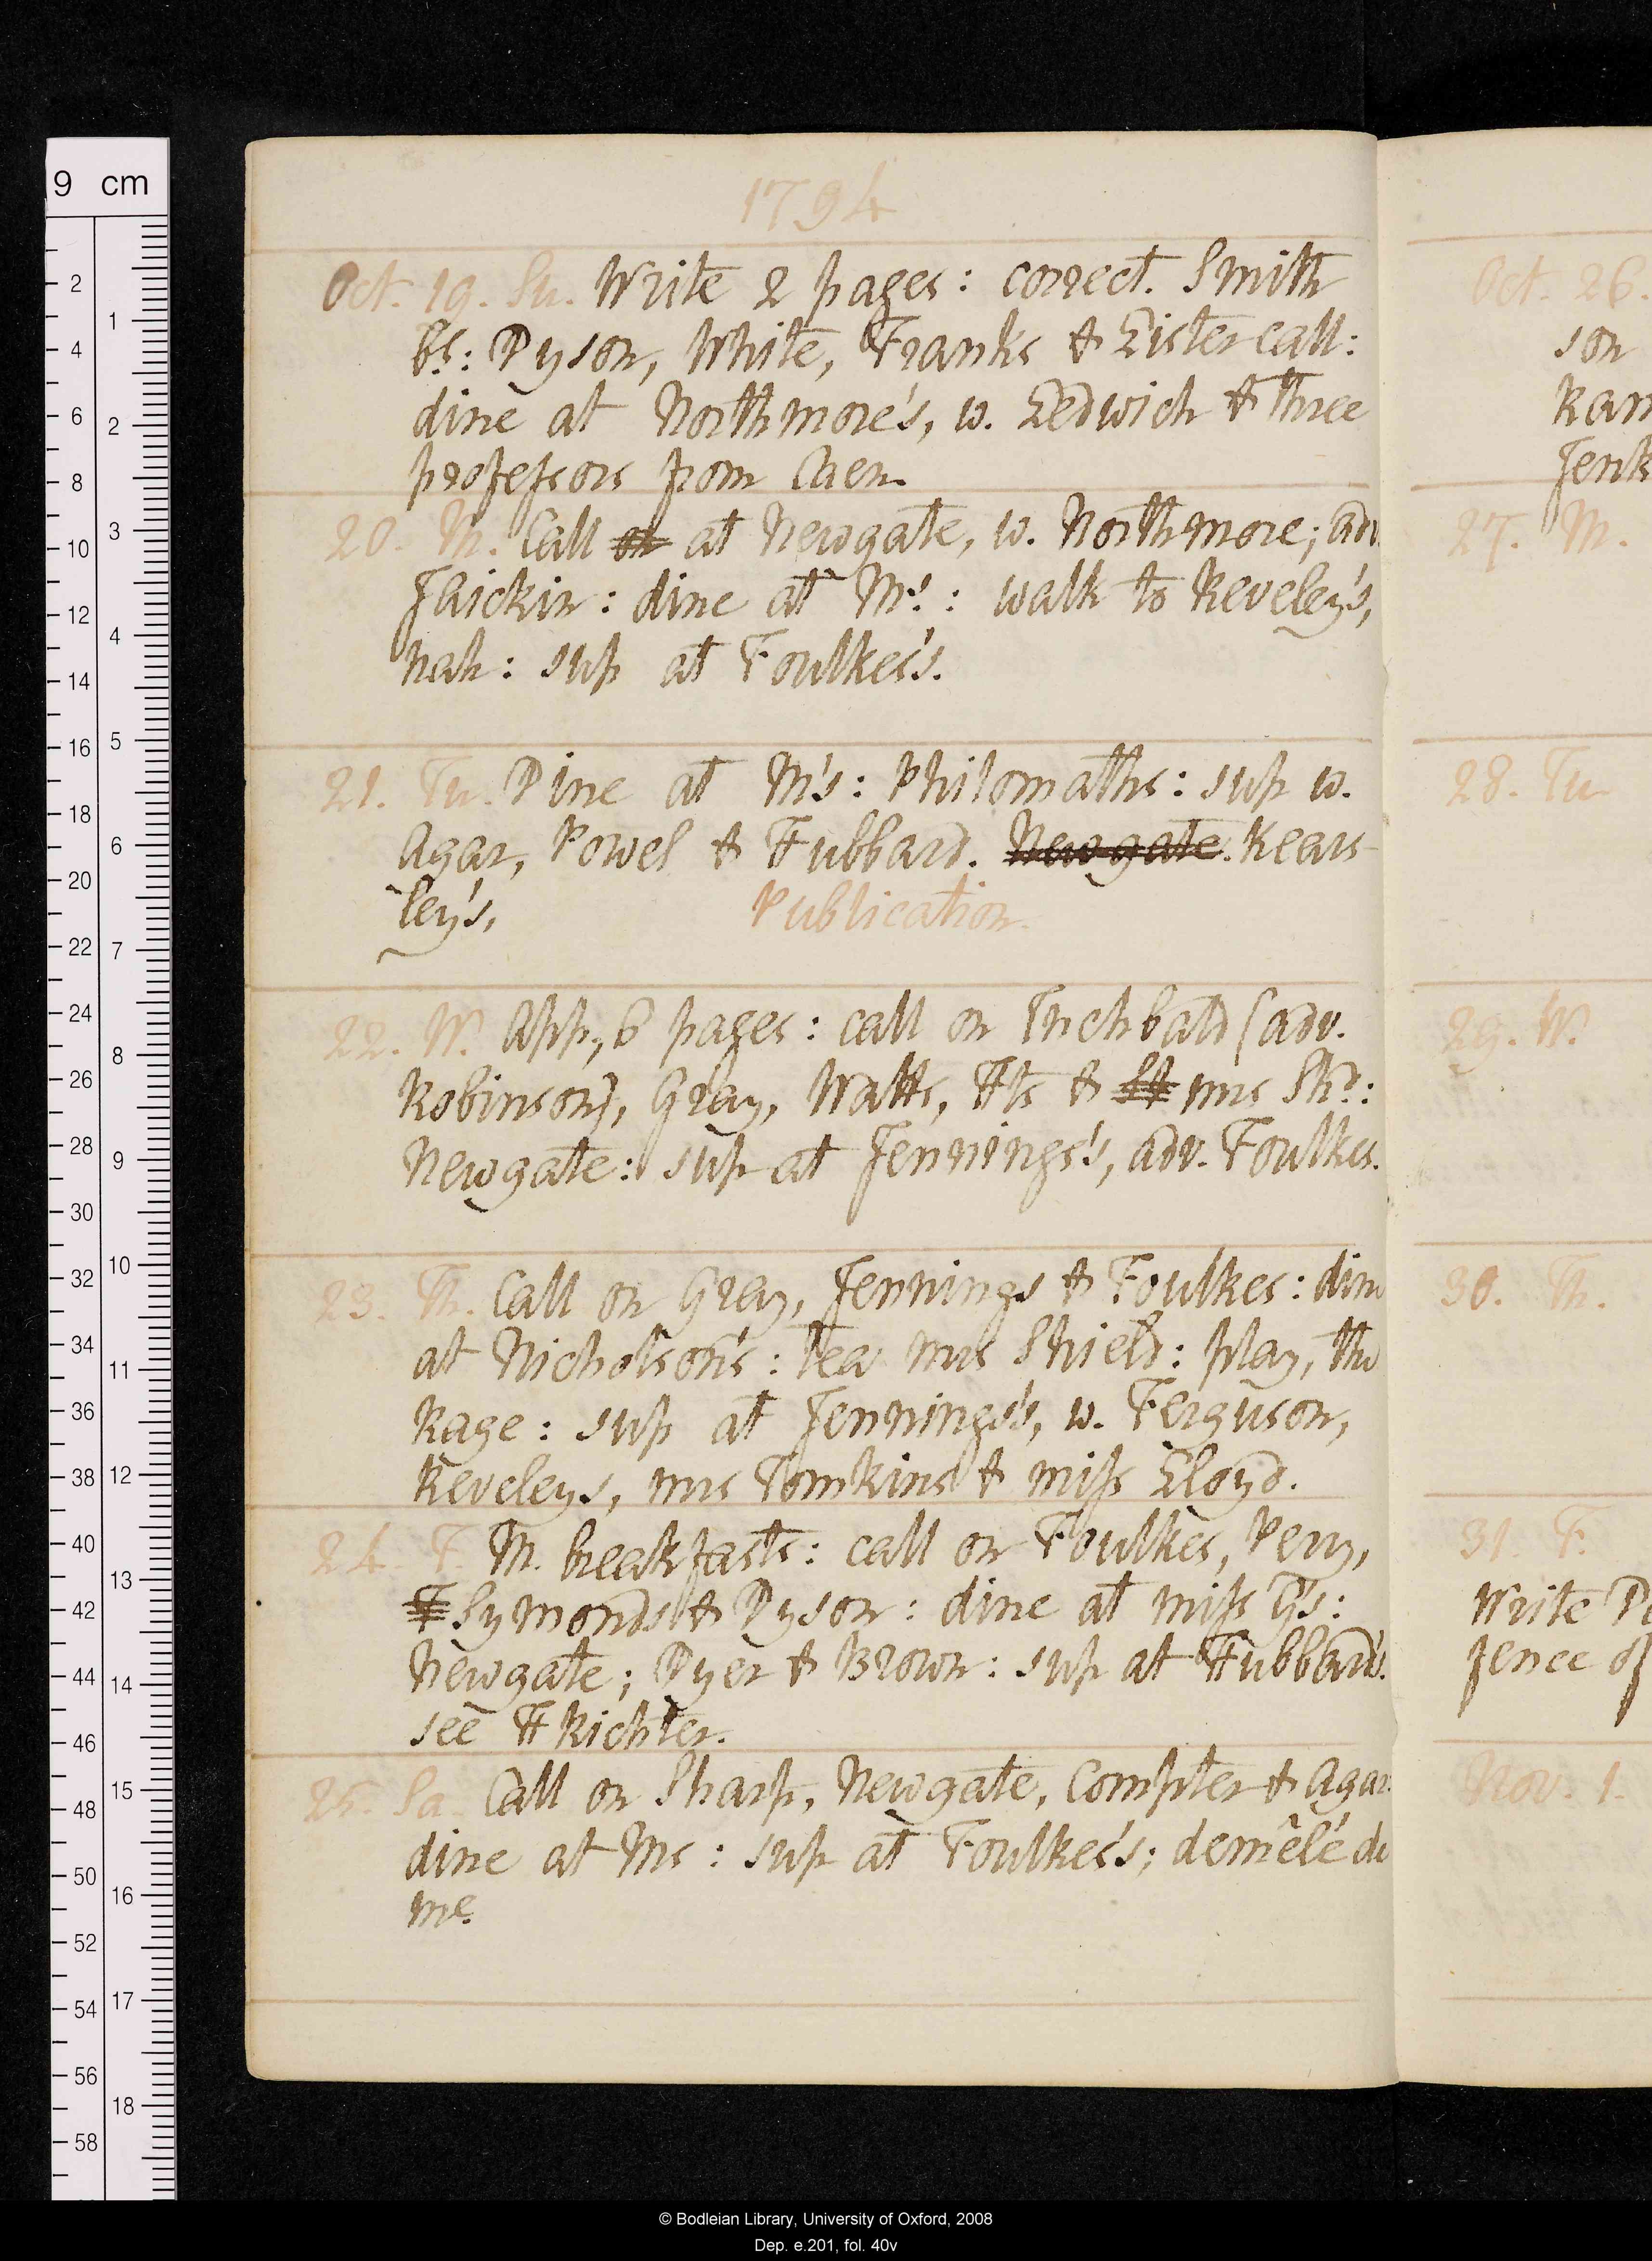 1794
Oct. 19. Su. Write 2 pages: correct. Smith
bt: Dyson, White, Franks & Lister call:
dine at Northmore's, w. Ledwich & three
professors from Caen.
20. M. Call on at Newgate, w. Northmore; adv.
Jaickin: dine at Ms: walk to Reveley's,
nah: sup at Foulkes's.
21. Tu. Dine at M's: Philomaths: sup w.
Agar, Powel & Hubbard. Newgate. Kears-
ley's,
Publication.
22. W. App, 6 pages: call on Inchbald (adv.
Robinson), Gray, Watts, Hts & mrs Shd:
Newgate: sup at Jennings's, adv. Foulkes.
23. Th. Call on Gray, Jennings & Foulkes: dine
at Nicholson's: tea mrs Shield: play, the
Rage: sup at Jennings's, w. Ferguson,
Reveleys, mrs Tomkins & miss Lloyd.
24. F. M. breakfasts: call on Foulkes, Perry,
Symonds & Dyson: dine at miss G's:
Newgate; Dyer & Brown: sup at Hubbard's.
see H Richter.
25. Sa. Call on Sharp, Newgate, Compter & Agar:
dine at Ms: sup at Foulkes's; demêlé de
me.
Oct. 26.
son
Ram
Jenk
27. M.
28. Tu
29. W.
30. Th.
31. F.
Write De
fence of
Nov. 1.
9 cm
2
1
4
6
2
8
3
10
12
4
14
16
5
18
6
20
22
7
24
8
26
28
9
30
10
32
34
11
36
12
38
40
13
42
44
14
46
15
48
50
16
52
54
17
56
18
58
© Bodleian Library, University of Oxford, 2008
Dep. e.201, fol. 40v